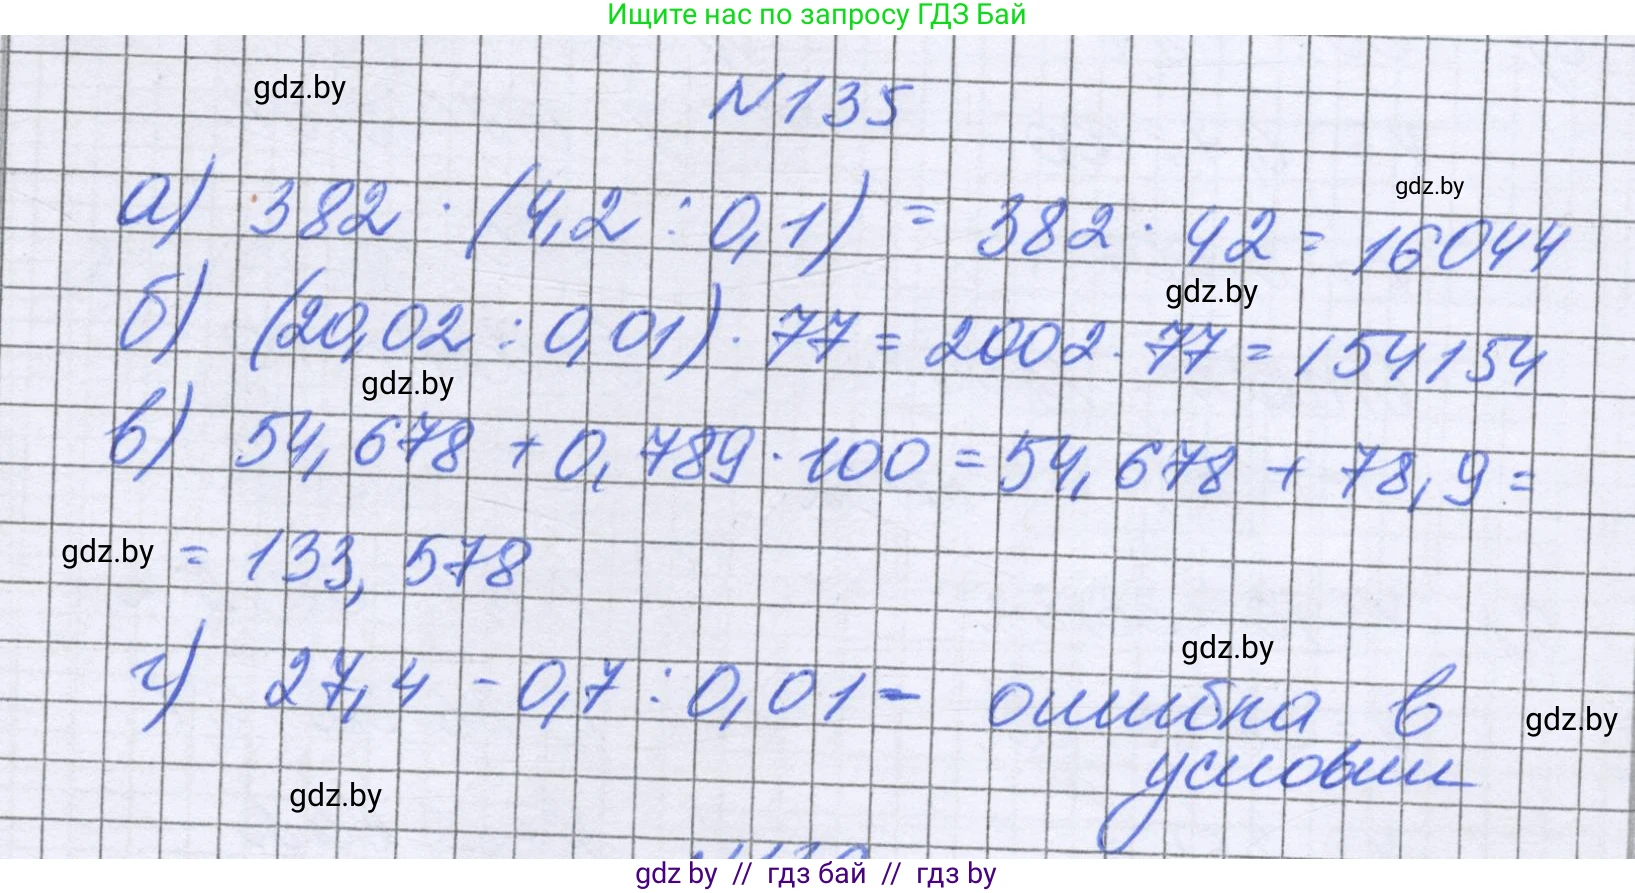 Ищите нас по запросу ГДЗ Бай
gdz.by
N135
gdz.by
а) 382 · (4,2 : 0,1) = 382 · 42 = 16044
gdz.by
б) (20,02 : 0,01) · 77 = 2002 · 77 = 154154
gdz.by
в) 54,678 + 0,789 · 100 = 54,678 + 78,9 =
gdz.by = 133,578
gdz.by
г) 27,4 - 0,7 : 0,01 - ошибка в
gdz.by
условии
gdz.by
gdz by // гдз бай // гдз by